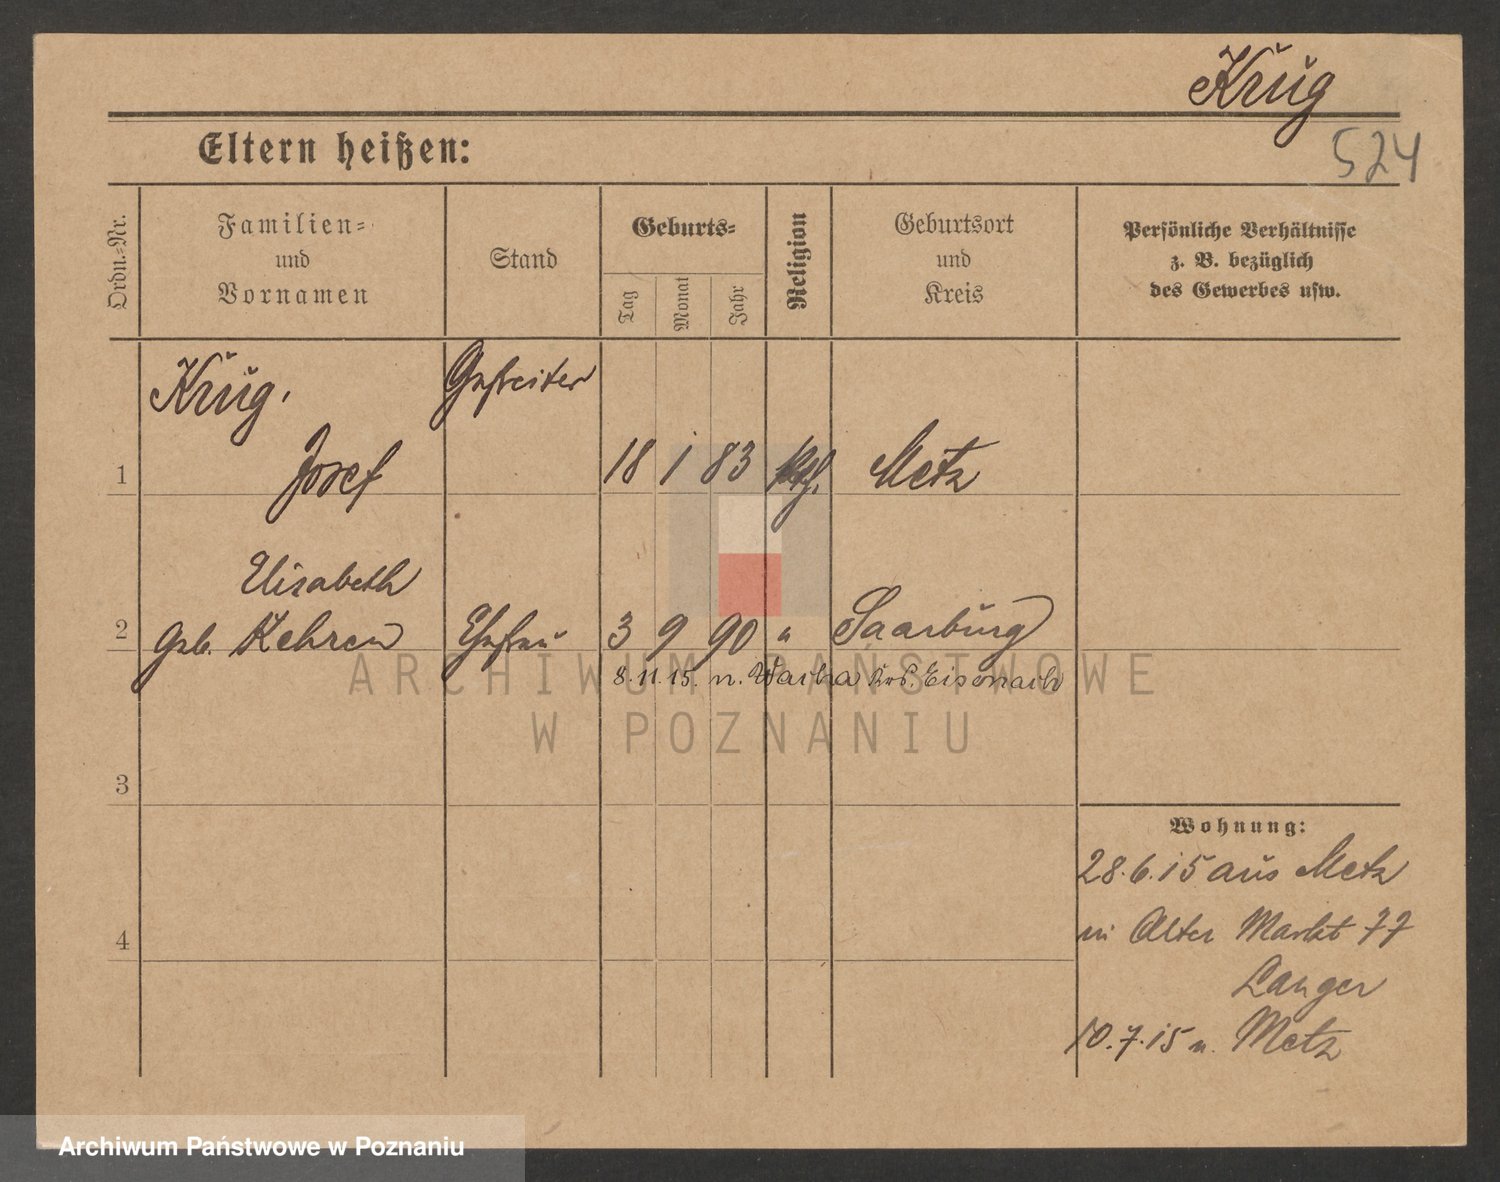 Krug
524
Eltern heißen:
Ordn.-Nr.
Familien-
und
Vornamen
Stand
Geburts-
Tag
Monat
Jahr
Religion
Geburtsort
und
Kreis
Persönliche Verhältnisse
z. B. bezüglich
des Gewerbes usw.
Krug. Gefreiter
1 Josef 18 1 83 kth. Metz
Elisabeth
2 geb. Kehren Ehefrau 3 9 90 " Saarburg
8.11.15. n. Wacha Krs. Eisenach
ARCHIWUM PAŃSTWOWE
W POZNANIU
3
4
Wohnung:
28.6.15 aus Metz
n. Alter Markt 77
Langer
10.7.15 n. Metz
Archiwum Państwowe w Poznaniu